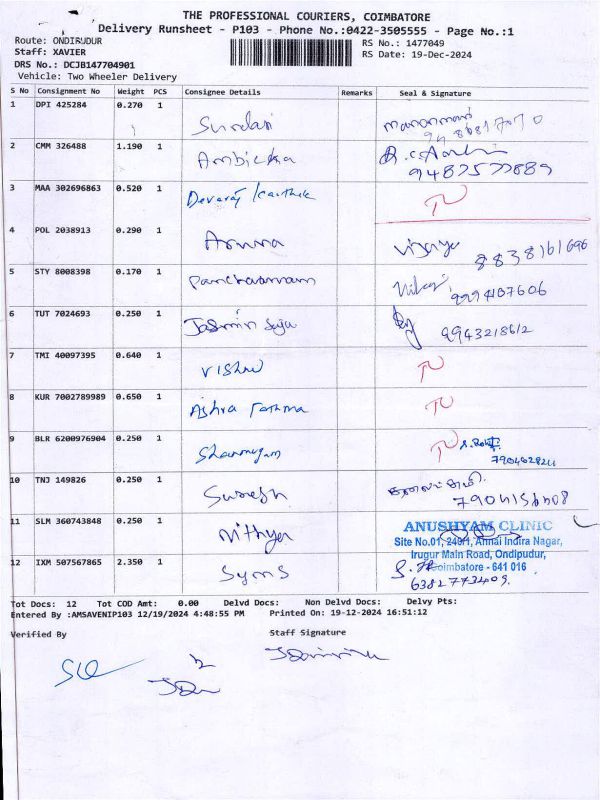 THE PROFESSIONAL COURIERS, COIMBATORE
Delivery Runsheet - P103 - Phone No.:0422-3505555 - Page No.:1
Route: ONDIRUDUR
RS No.: 1477049
Staff: XAVIER
RS Date: 19-Dec-2024
DRS No.: DCJB147704901
Vehicle: Two Wheeler Delivery
S No Consignment No Weight PCS Consignee Details Remarks Seal & Signature
1 DPI 425284 0.270 1 Sundari
2 CMM 326488 1.190 1 Ambicka
9487577889
3 MAA 302696863 0.520 1 Devaraj Karthik
4 POL 2038913 0.290 1 Aruna Vijaya 8838161696
5 STY 8008398 0.170 1 Pancharnam
9994107606
6 TUT 7024693 0.250 1 Jasmin Suja
9943218612
7 TMI 40097395 0.640 1 Vishnu
8 KUR 7002789989 0.650 1 Ashra Fathma
9 BLR 6200976904 0.250 1 Shanmugam
10 TNJ 149826 0.250 1 Suresh
11 SLM 360743848 0.250 1 Nithya
ANUSHYAM CLINIC
Site No.01, 249/1, Annai Indira Nagar,
Irugur Main Road, Ondipudur,
Coimbatore - 641 016
12 IXM 507567865 2.350 1 Syms
6382773409
Tot Docs: 12 Tot COD Amt: 0.00 Delvd Docs: Non Delvd Docs: Delvy Pts:
Entered By :AMSAVENIP103 12/19/2024 4:48:55 PM Printed On: 19-12-2024 16:51:12
Verified By
Staff Signature